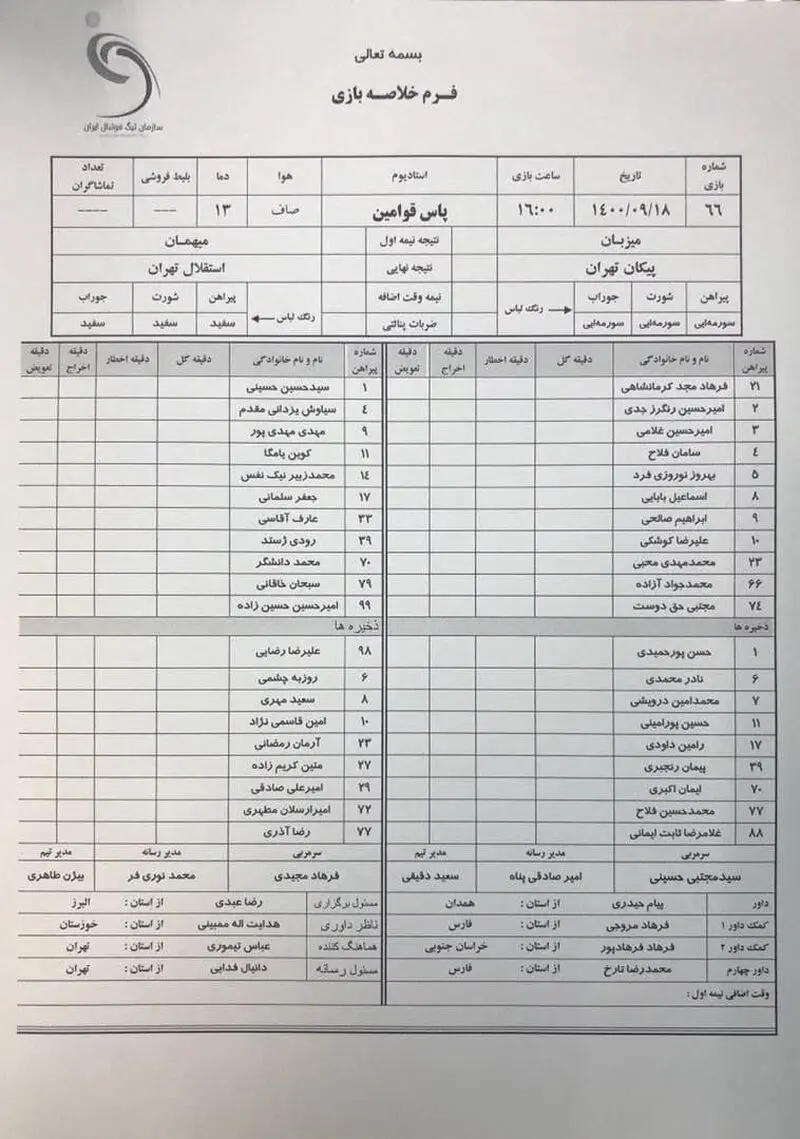 بسمه تعالی
فرم خلاصه بازی
سازمان لیگ فوتبال ایران
شماره بازی تاریخ ساعت بازی استادیوم هوا دما بلیط فروشی تعداد تماشاگران
۶۶ ۱۴۰۰/۰۹/۱۸ ۱۶:۰۰ پاس قوامین صاف ۱۳ --- ----
میزبان نتیجه نیمه اول میهمان
پیکان تهران نتیجه نهایی استقلال تهران
پیراهن شورت جوراب رنگ لباس نیمه وقت اضافه رنگ لباس پیراهن شورت جوراب
سورمه‌ایی سورمه‌ایی سورمه‌ایی ضربات پنالتی سفید سفید سفید
شماره پیراهن نام و نام خانوادگی دقیقه گل دقیقه اخطار دقیقه اخراج دقیقه تعویض شماره پیراهن نام و نام خانوادگی دقیقه گل دقیقه اخطار دقیقه اخراج دقیقه تعویض
۲۱ فرهاد مجد کرمانشاهی ۱ سیدحسین حسینی
۲ امیرحسین رنگرز جدی ۴ سیاوش یزدانی مقدم
۳ امیرحسین غلامی ۹ مهدی مهدی پور
۴ سامان فلاح ۱۱ کوین یامگا
۵ بهروز نوروزی فرد ۱۴ محمدزبیر نیک نفس
۸ اسماعیل بابایی ۱۷ جعفر سلمانی
۹ ابراهیم صالحی ۳۳ عارف آقاسی
۱۰ علیرضا کوشکی ۳۹ رودی ژستد
۲۳ محمدمهدی محبی ۷۰ محمد دانشگر
۶۶ محمدجواد آزاده ۷۹ سبحان خاقانی
۷۴ مجتبی حق دوست ۹۹ امیرحسین حسین زاده
ذخیره ها ذخیره ها
۱ حسن پورحمیدی ۹۸ علیرضا رضایی
۶ نادر محمدی ۶ روزبه چشمی
۷ محمدامین درویشی ۸ سعید مهری
۱۱ حسین پورامینی ۱۰ امین قاسمی نژاد
۱۷ رامین داودی ۲۳ آرمان رمضانی
۳۹ پیمان رنجبری ۲۷ متین کریم زاده
۷۰ ایمان اکبری ۲۹ امیرعلی صادقی
۷۷ محمدحسین فلاح ۷۲ امیرارسلان مطهری
۸۸ غلامرضا ثابت ایمانی ۷۷ رضا آذری
سرمربی مدیر رسانه مدیر تیم سرمربی مدیر رسانه مدیر تیم
سیدمجتبی حسینی امیر صادقی پناه سعید دقیقی فرهاد مجیدی محمد نوری فر بیژن طاهری
داور پیام حیدری از استان : همدان مسئول برگزاری رضا عبدی از استان : البرز
کمک داور ۱ فرهاد مروجی از استان : فارس ناظر داوری هدایت اله ممبینی از استان : خوزستان
کمک داور ۲ فرهاد فرهادپور از استان : خراسان جنوبی هماهنگ کننده عباس تیموری از استان : تهران
داور چهارم محمدرضا تارخ از استان : فارس مسئول رسانه دانیال فدایی از استان : تهران
وقت اضافی نیمه اول: